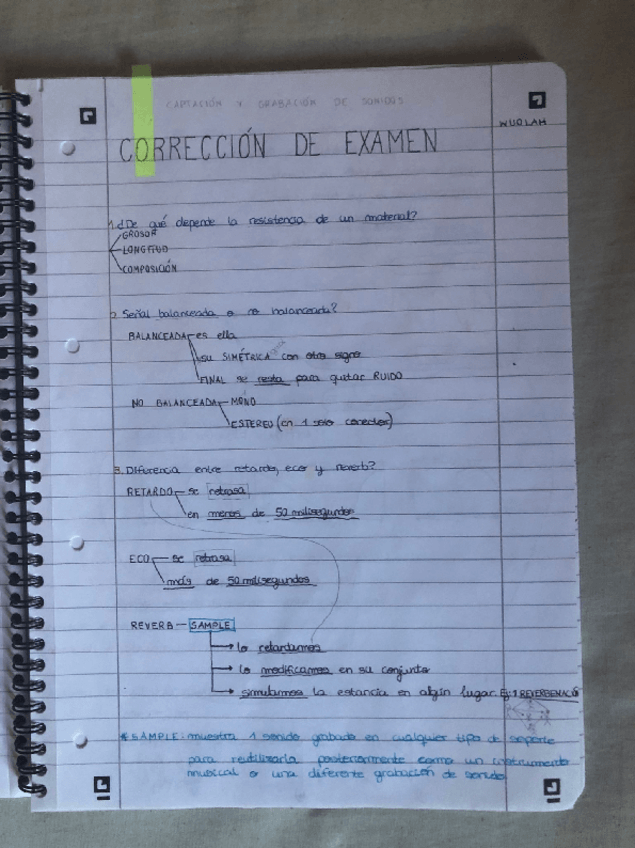 CAPTACIÓN Y GRABACIÓN DE SONIDOS
WUOLAH
CORRECCIÓN DE EXAMEN
1. ¿De qué depende la resistencia de un material?
GROSOR
LONGITUD
COMPOSICIÓN
2. Señal balanceada o no balanceada?
BALANCEADA es ella
su SIMÉTRICA con otro signo
FINAL se resta para quitar RUIDO
NO BALANCEADA MONO
ESTEREO (en 1 solo conector)
3. Diferencia entre retardo, eco y reverb?
RETARDO se retrasa
en menos de 50 milisegundos
ECO se retrasa
más de 50 milisegundos
REVERB — SAMPLE
→ lo retardamos
→ lo modificamos en su conjunto
→ simulamos la estancia en algún lugar. Ej: 1 REVERBENACIÓN
* SAMPLE: muestra 1 sonido grabado en cualquier tipo de soporte
para reutilizarla posteriormente como un instrumento
musical o una diferente grabación de sonido